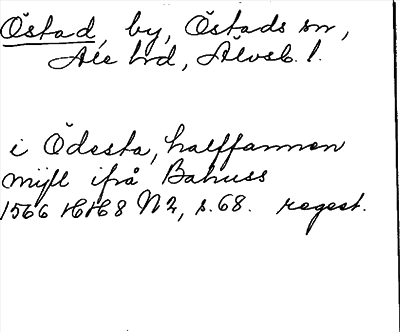 Östad, by, Östads sn,
Ale hd, Älvsb. l.
i Ödesta, halffannen
mijll ifrå Bahuss
1566 HH8 N2, s.68. regest.